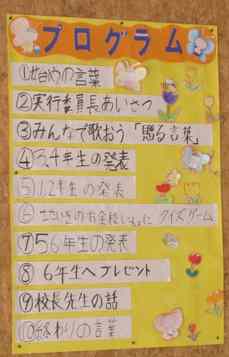 プログラム
①始めの言葉
②実行委員長あいさつ
③みんなで歌おう「贈る言葉」
④3,4年生の発表
⑤1,2年生の発表
⑥クイズゲーム
⑦5,6年生の発表
⑧6年生へプレゼント
⑨校長先生の話
⑩終わりの言葉